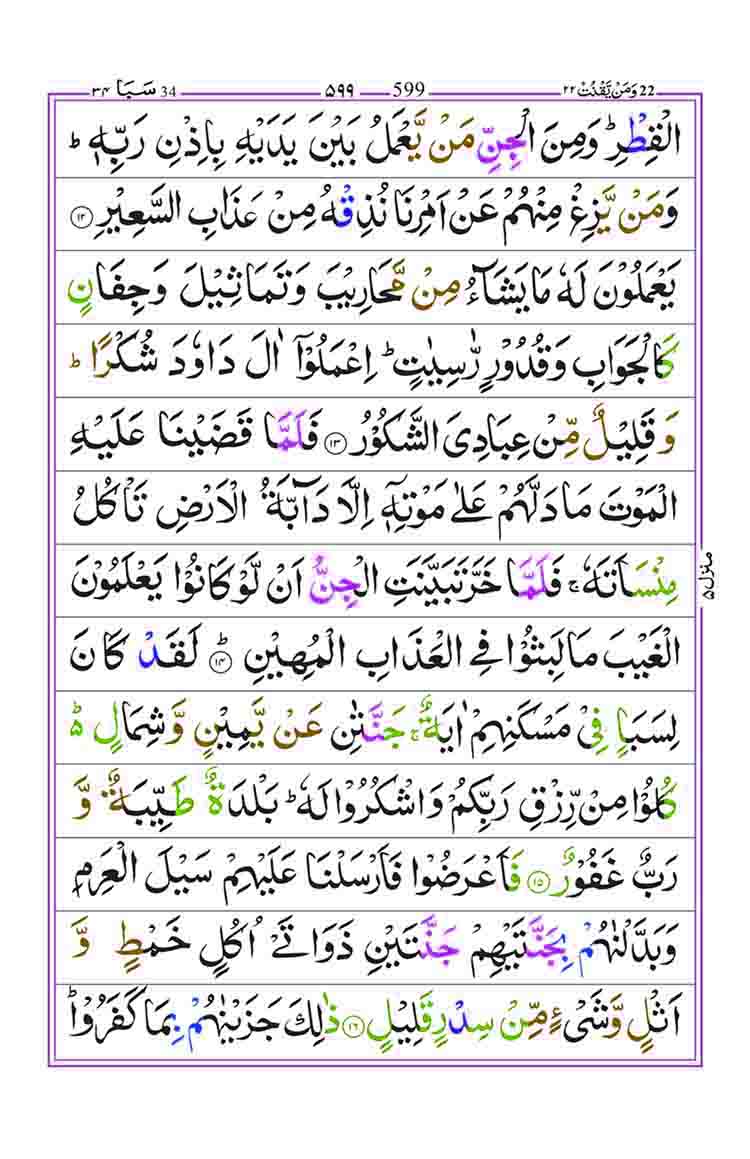 22 وَمَنْ يَّقْنُتْ ۲۲ 599 ۵۹۹ 34 سَبَا ۳۴
الْقِطْرِ ؕ وَمِنَ الْجِنِّ مَنْ يَّعْمَلُ بَيْنَ يَدَيْهِ بِاِذْنِ رَبِّهٖ ؕ
وَمَنْ يَّزِغْ مِنْهُمْ عَنْ اَمْرِنَا نُذِقْهُ مِنْ عَذَابِ السَّعِيْرِ ﴿۱۲﴾
يَعْمَلُوْنَ لَهٗ مَا يَشَآءُ مِنْ مَّحَارِيْبَ وَتَمَاثِيْلَ وَجِفَانٍ
كَالْجَوَابِ وَقُدُوْرٍ رّٰسِيٰتٍ ؕ اِعْمَلُوْۤا اٰلَ دَاوٗدَ شُكْرًا ؕ
وَ قَلِيْلٌ مِّنْ عِبَادِيَ الشَّكُوْرُ ﴿۱۳﴾ فَلَمَّا قَضَيْنَا عَلَيْهِ
الْمَوْتَ مَا دَلَّهُمْ عَلٰى مَوْتِهٖۤ اِلَّا دَآبَّةُ الْاَرْضِ تَاْكُلُ
مِنْسَاَتَهٗ ۚ فَلَمَّا خَرَّ تَبَيَّنَتِ الْجِنُّ اَنْ لَّوْ كَانُوْا يَعْلَمُوْنَ
الْغَيْبَ مَا لَبِثُوْا فِي الْعَذَابِ الْمُهِيْنِ ؕ ﴿۱۴﴾ لَقَدْ كَانَ
لِسَبَاٍ فِيْ مَسْكَنِهِمْ اٰيَةٌ ۚ جَنَّتٰنِ عَنْ يَّمِيْنٍ وَّشِمَالٍ ؕ۬
كُلُوْا مِنْ رِّزْقِ رَبِّكُمْ وَاشْكُرُوْا لَهٗ ؕ بَلْدَةٌ طَيِّبَةٌ وَّ
رَبٌّ غَفُوْرٌ ﴿۱۵﴾ فَاَعْرَضُوْا فَاَرْسَلْنَا عَلَيْهِمْ سَيْلَ الْعَرِمِ
وَبَدَّلْنٰهُمْ بِجَنَّتَيْهِمْ جَنَّتَيْنِ ذَوَاتَيْ اُكُلٍ خَمْطٍ وَّ
اَثْلٍ وَّشَيْءٍ مِّنْ سِدْرٍ قَلِيْلٍ ﴿۱۶﴾ ذٰلِكَ جَزَيْنٰهُمْ بِمَا كَفَرُوْا ؕ
منزل ۵